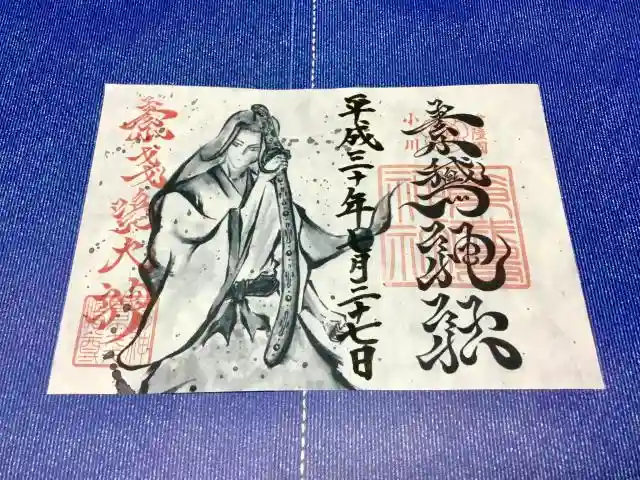 常陸國
小川
素鵞神社
平成三十年七月二十七日
素戔嗚大神